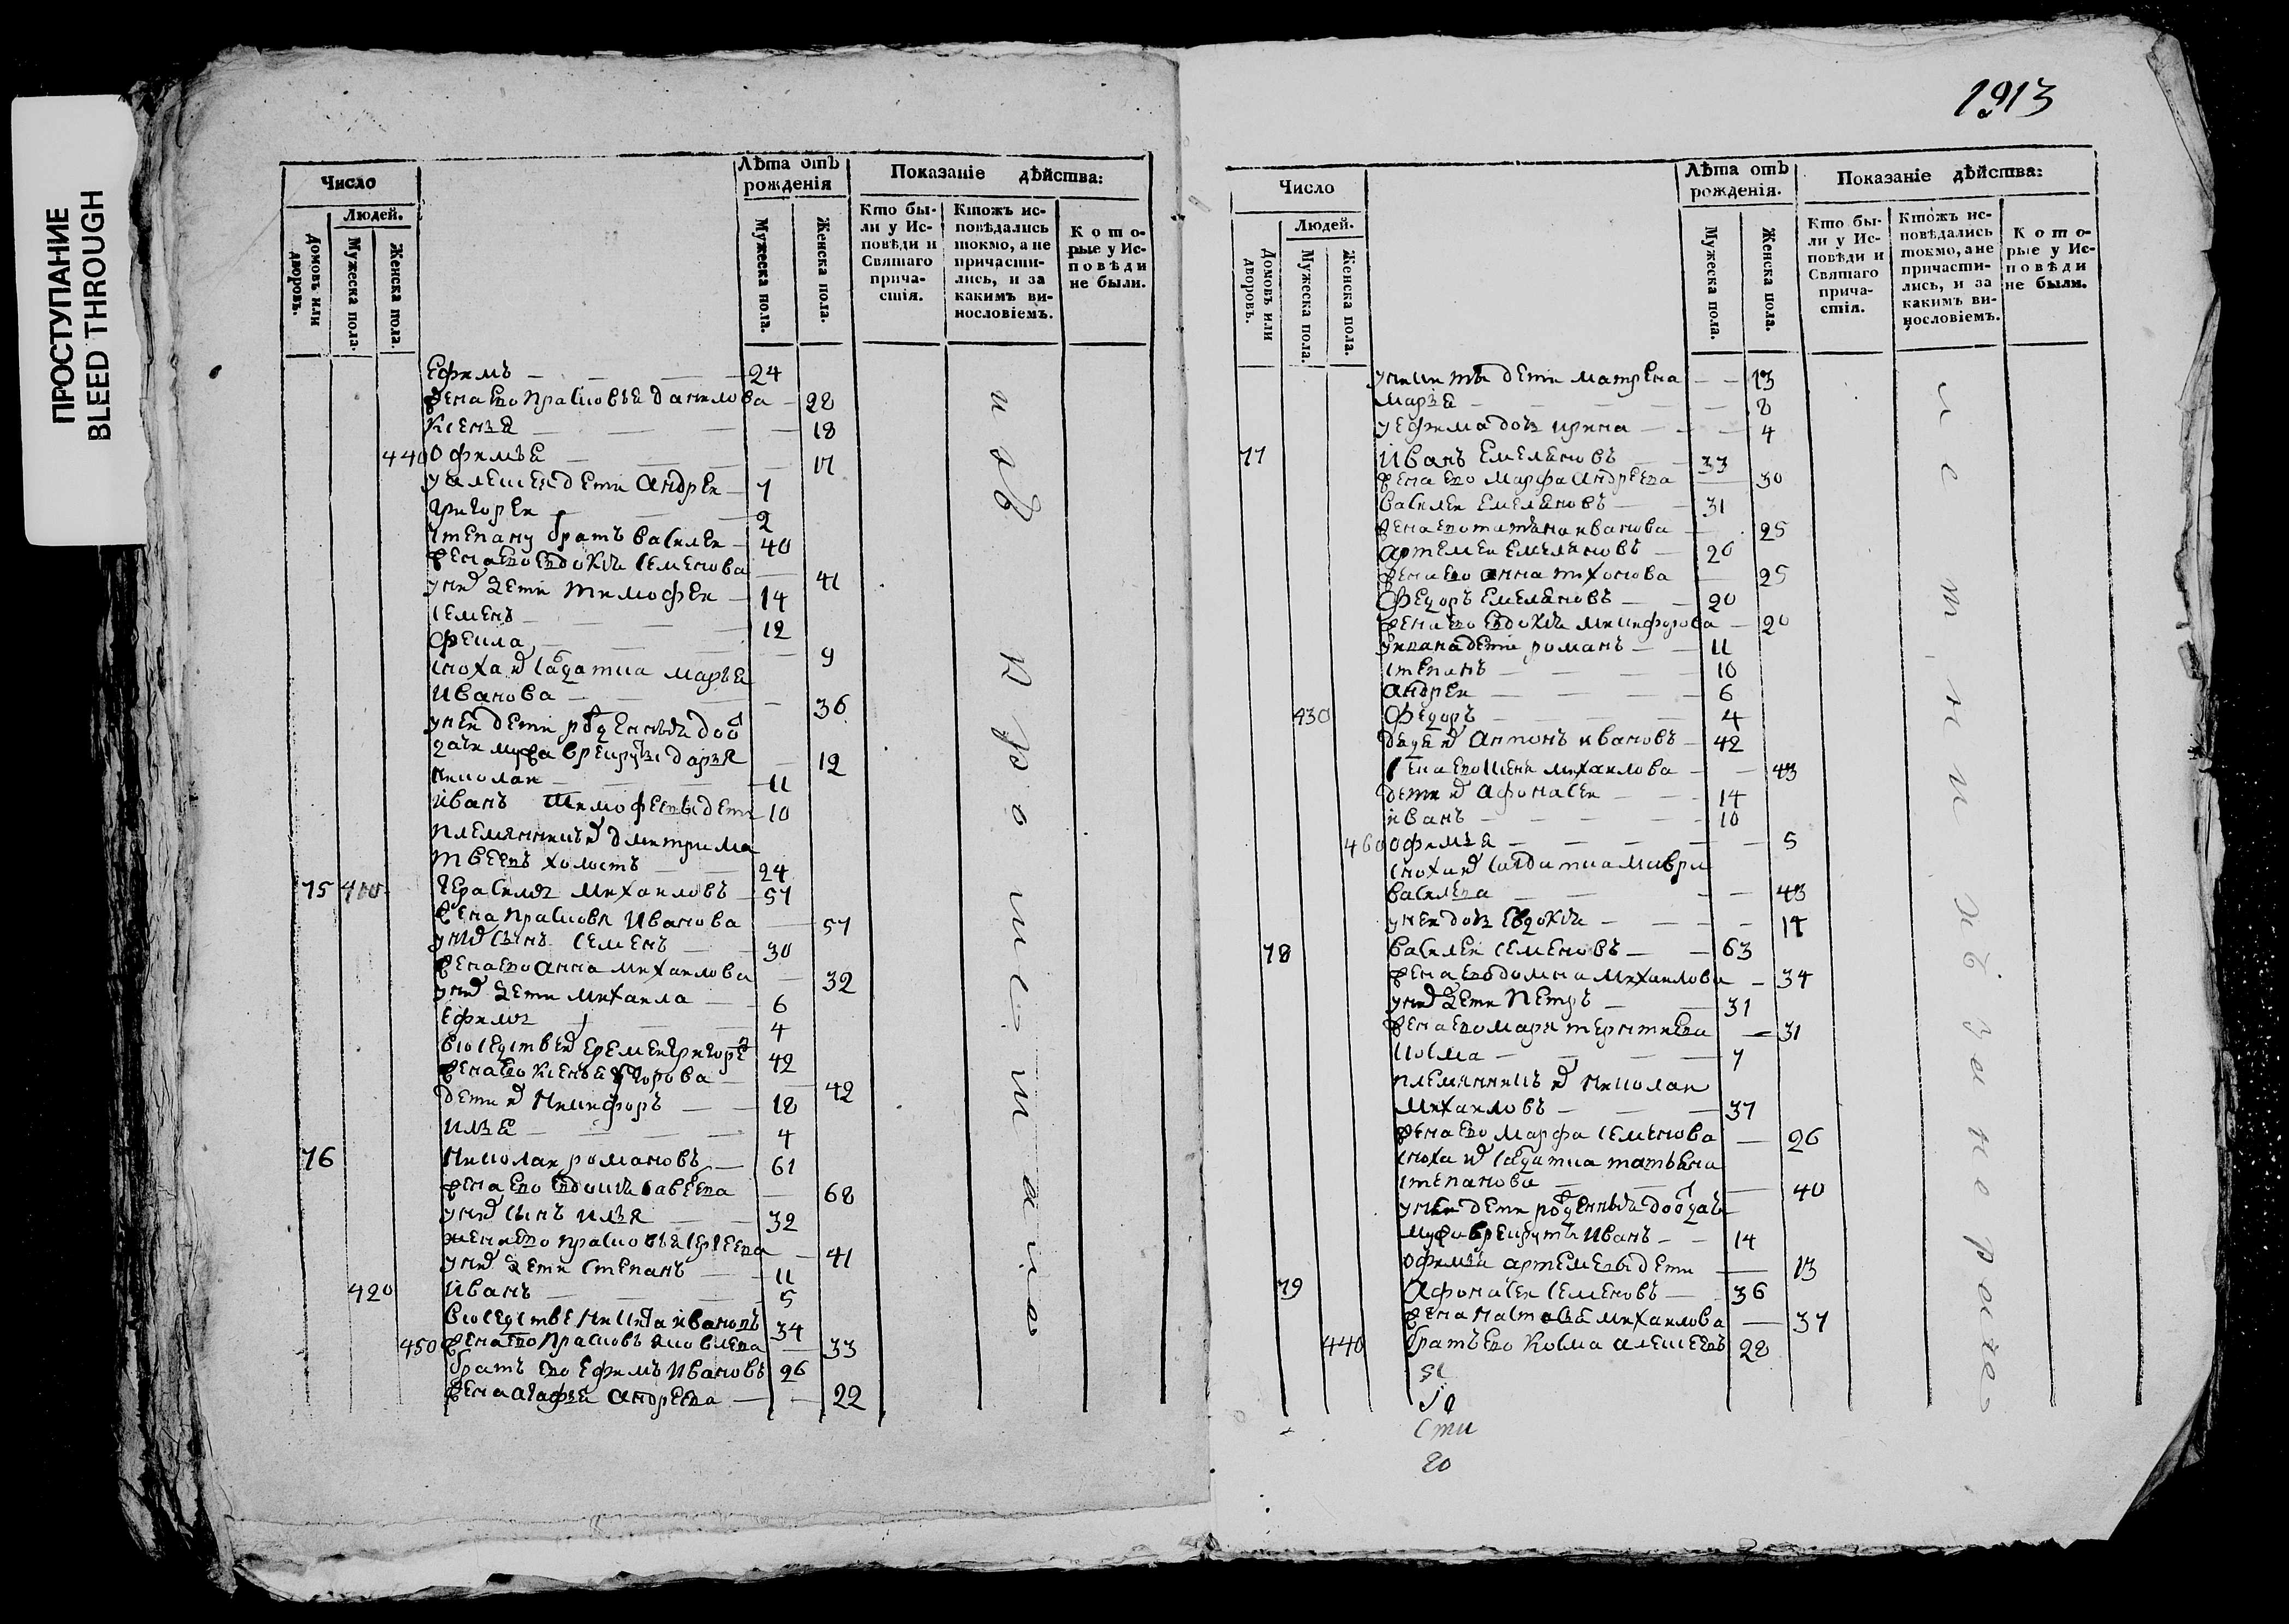 ПРОСТУПАНИЕ
BLEED THROUGH
Число
Людей.
Домовъ или дворовъ.
Мужеска пола.
Женска пола.
Лѣта отъ
рожденія
Мужеска пола.
Женска пола.
Показаніе дѣйства:
Кто бы-
ли у Ис-
повѣди и
Святаго
прича-
стія.
Ктожъ ис-
повѣдались
токмо, а не
причасти-
лись, и за
какимъ ви-
нословіемъ.
Кото-
рые у Ис-
повѣди
не были.
Ефимъ 24
жена ево Прасковья Данилова 28
Ксенья 18
440 Офимья 17
у Алексея дети Андреи 7
Григореи 2
Степану братъ Василеи 40
жена ево Евдокия Семенова 41
у них дети Тимофеи 14
Семенъ 12
Фекла 9
сноха их салдатка Марья
Иванова 36
у неи дети
Дарья 12
Николаи 11
Иванъ Тимофеевы дети 10
племянникъ их Дмитри Ма
твеевъ холостъ 24
75 410 Герасимъ Михаиловъ 57
жена Прасковя Иванова 57
у них сынъ Семенъ 30
жена ево Анна Михаилова 32
у них дети Михаила 6
Ефимъ 4
Еремеи Григоре 42
жена ево Ксенья Егорова 42
дети их Никифоръ 18
Илья 4
76 Николаи Романовъ 61
жена ево Евдокия Савеева 68
у них сынъ Илья 32
жена ево Прасковья Сергеева 41
у них дети Степанъ 11
420 Иванъ 5
Никита Ивановъ 34
450 жена ево Прасковья Яковлева 33
братъ ево Ефимъ Ивановъ 26
жена Агафья Андреева 22
1913
Число
Людей.
Домовъ или дворовъ.
Мужеска пола.
Женска пола.
Лѣта отъ
рожденія.
Мужеска пола.
Женска пола.
Показаніе дѣйства:
Кто бы-
ли у Ис-
повѣди и
Святаго
прича-
стія.
Ктожъ ис-
повѣдались
токмо, а не
причасти-
лись, и за
какимъ ви-
нословіемъ.
Кото-
рые у Ис-
повѣди
не были.
у Никиты дети Матрена 13
Марья 8
у Ефима дочь Ирина 4
77 Иванъ Емеляновъ 33
жена ево Марфа Андреева 30
Василеи Емеляновъ 31
жена ево Татьяна Иванова 25
Артемеи Емеляновъ 26
жена ево Анна Тихонова 25
Федоръ Емеляновъ 20
жена ево Евдокия Никифорова 20
у Ивана дети Романъ 11
Степанъ 10
Андреи 6
430 Федоръ 4
дядя их Антонъ Ивановъ 42
жена ево Михаилова 43
дети их Афонасеи 14
Иванъ 10
460 Офимья 5
сноха их салдатка Мавра
Василева 43
у неи дочь Евдокия 14
78 Василеи Семеновъ 63
жена ево Домна Михаилова 34
у них дети Петръ 31
жена ево Маря Терентиева 31
Косма 7
племянникъ их Николаи
Михаиловъ 37
жена ево Марфа Семенова 26
сноха их салдатка Татьяна
Степанова 40
у неи дети
Иванъ 14
Офимья Артемевы дети 13
79 Афонасеи Семеновъ 36
жена Настасья Михаилова 37
440 братъ ево Косма Алексеевъ 28